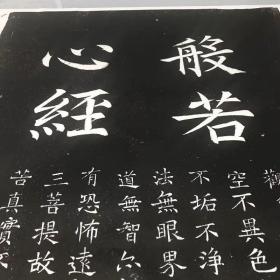 般若
心經
觀
空不異色
不垢不淨
法無眼界
道無智亦
有恐怖遠
三菩提故
苦真實不